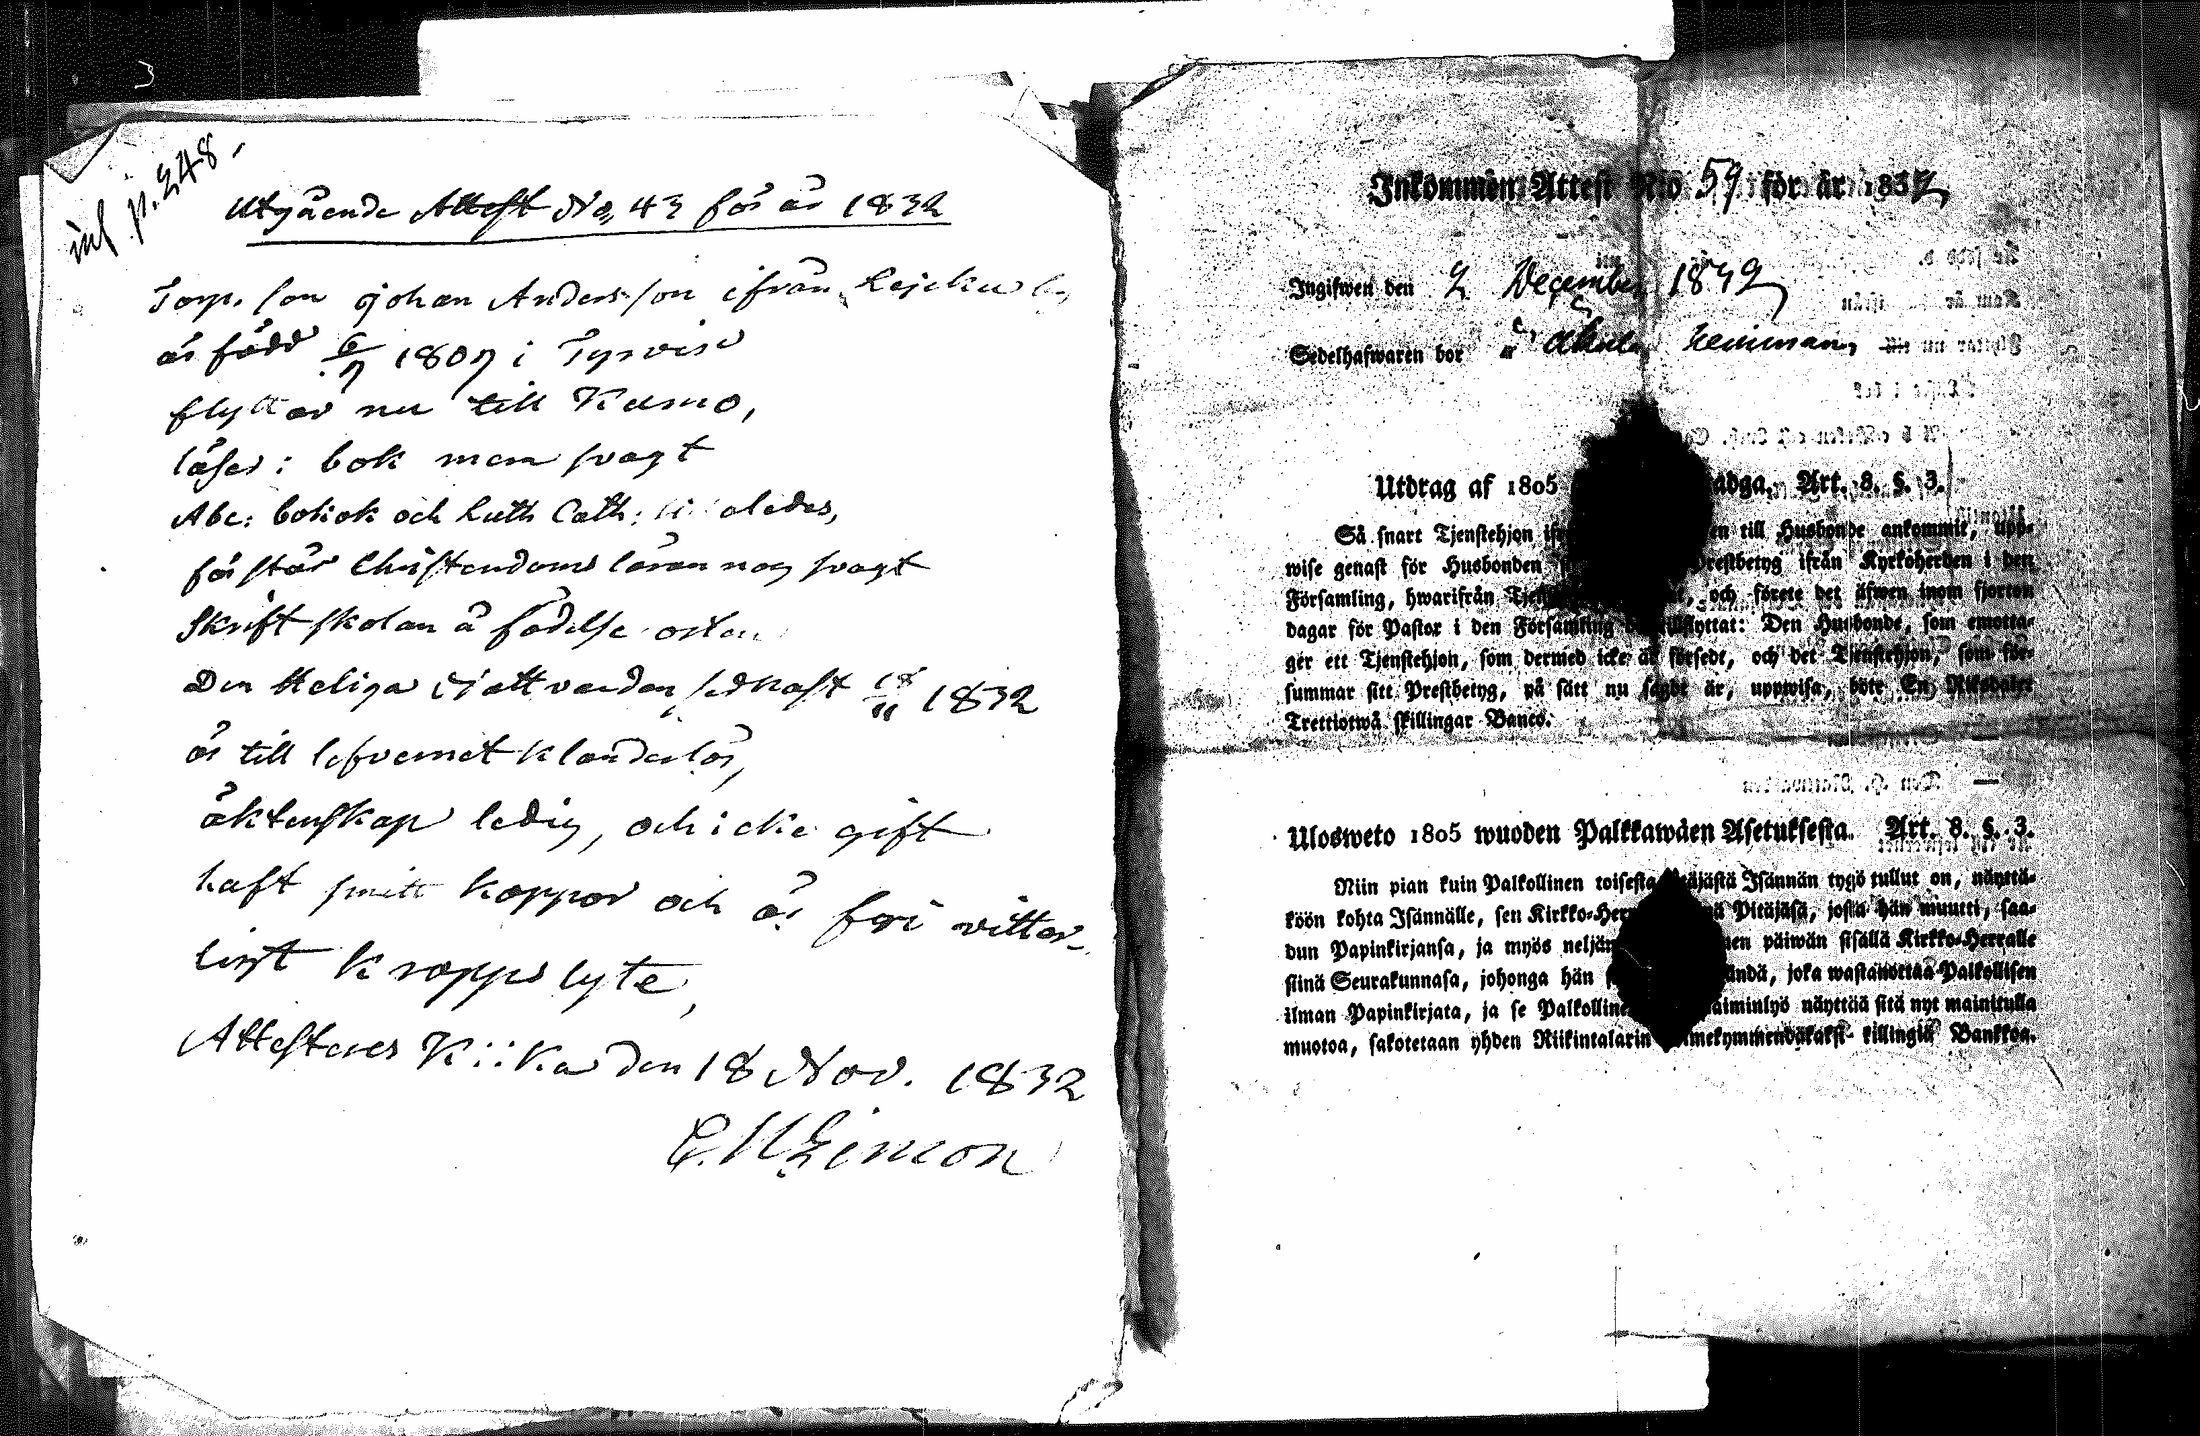 3
inf. p. 248.
Utgående Attest No, 43 för år 1832
Torp. son Johan Andersson ifrån
är född 6/7 1807 i Tyrvis
flyttar nu till Kumo,
läser: bok men svagt
Abc: bokok och Luth Cath: li oledes,
förstår Christendoms läran nog svagt
Skrift skolan å födelse orten
Den Heliga Nattvarden sednast 18/11 1832
är till lefvernet klanderlös,
äktenskap ledig, och icke gift
haft smitt koppor och är fri vitter-
ligt kropps lyte,
Attesteres Kiika den 18 Nov. 1832
Inkommen Attest N:o 59 för år 1832
Ingifwen den 2 December 1832
Sedelhafwaren bor
Utdrag af 1805 adga. Art. 8. §. 3.
Så snart Tjenstehjon en till Husbonde ankommit, upp-
wise genast för Husbonden restbetyg ifrån Kyrkoherden i den
Församling, hwarifrån , och förete det äfwen inom fjorton
dagar för Pastor i den Församling illflyttat: Den Husbonde, som emotta-
ger ett Tjenstehjon, som dermed icke är försedt, och det Tjenstehjon, som för-
summar sitt Prestbetyg, på sätt nu sagdt är, uppwisa, böte En Riksdaler
Trettiotwå skillingar Banco.
Ulosweto 1805 wuoden Palkkawäen Asetuksesta. Art. 8. §. 3.
Niin pian kuin Palkollinen toisesta täjästä Isännän tygö tullut on, näyttä-
köön kohta Isännälle, sen Kirkko-Herr ä Pitäjäsä, josta hän muutti, saa-
dun Papinkirjansa, ja myös neljän nen päiwän sisällä Kirkko-Herralle
siinä Seurakunnasa, johonga hän ändä, joka wastanottaa Palkollisen
ilman Papinkirjata, ja se Palkolline aiminlyö näyttää sitä nyt mainitulla
muotoa, sakotetaan yhden Riikintalarin mekymmendäkaksi killingiä Bankkoa.